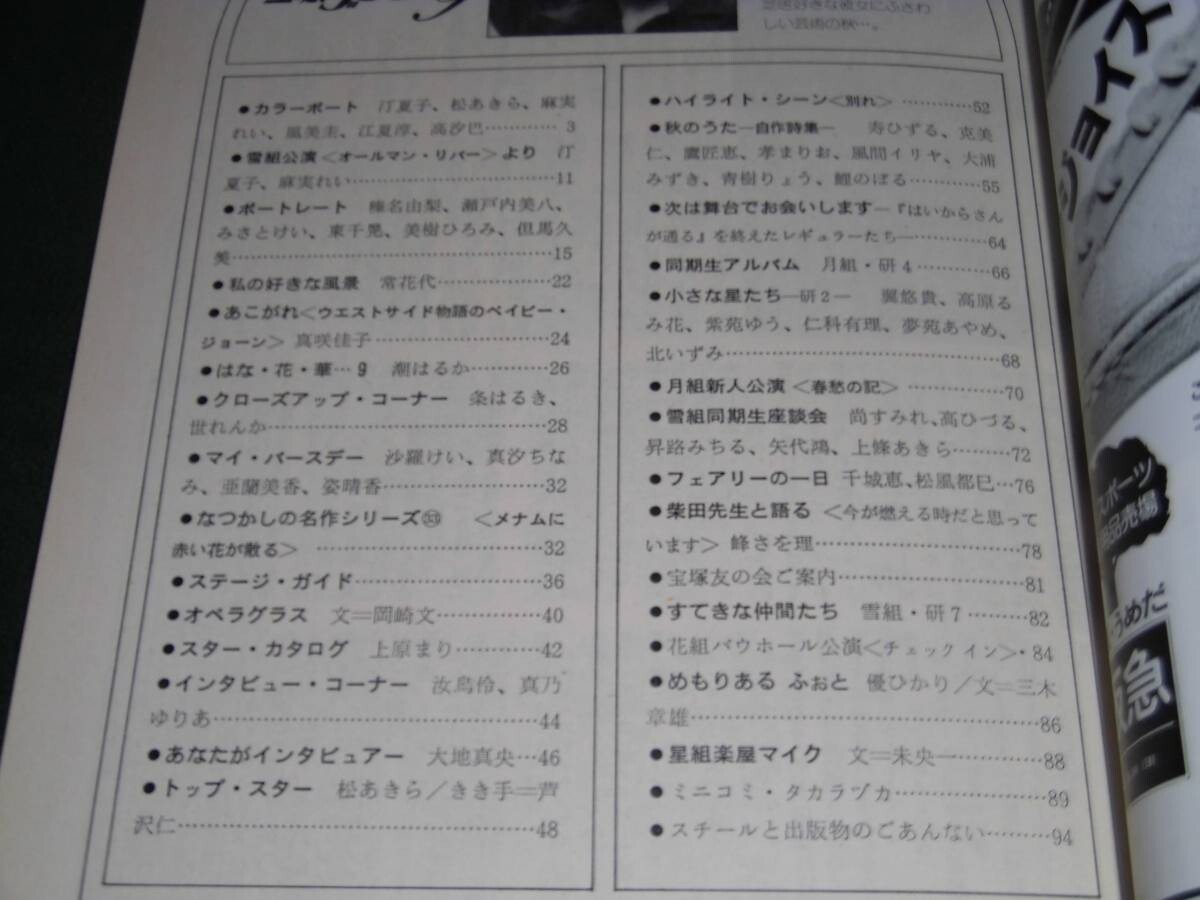 芝居好きな彼女にふさわ
しい芸術の秋…。
●カラーポート　汀夏子、松あきら、麻実
れい、風美圭、江夏淳、高汐巴…………3
●雪組公演＜オールマン・リバー＞より　汀
夏子、麻実れい……………………………11
●ポートレート　榛名由梨、瀬戸内美八、
みさとけい、東千晃、美樹ひろみ、但馬久
美……………………………………………15
●私の好きな風景　常花代………………22
●あこがれ＜ウエストサイド物語のベイビー・
ジョーン＞　真咲佳子……………………24
●はな・花・華…9　潮はるか……………26
●クローズアップ・コーナー　条はるき、
世れんか……………………………………28
●マイ・バースデー　沙羅けい、真汐ちな
み、亜蘭美香、姿晴香……………………32
●なつかしの名作シリーズ㉝　＜メナムに
赤い花が散る＞……………………………32
●ステージ・ガイド………………………36
●オペラグラス　文＝岡崎文……………40
●スター・カタログ　上原まり…………42
●インタビュー・コーナー　汝鳥伶、真乃
ゆりあ………………………………………44
●あなたがインタビュアー　大地真央…46
●トップ・スター　松あきら／きき手＝芦
沢仁…………………………………………48
●ハイライト・シーン＜別れ＞…………52
●秋のうた―自作詩集―　寿ひずる、克美
仁、鷹匠恵、孝まりお、風間イリヤ、大浦
みずき、青樹りょう、鯉のぼる…………55
●次は舞台でお会いします―『はいからさん
が通る』を終えたレギュラーたち―……64
●同期生アルバム　月組・研4……………66
●小さな星たち―研2―　翼悠貴、高原る
み花、紫苑ゆう、仁科有理、夢苑あやめ、
北いずみ……………………………………68
●月組新人公演＜春愁の記＞……………70
●雪組同期生座談会　尚すみれ、高ひづる、
昇路みちる、矢代鴻、上條あきら………72
●フェアリーの一日　千城恵、松風都巳…76
●柴田先生と語る　＜今が燃える時だと思って
います＞　峰さを理………………………78
●宝塚友の会ご案内………………………81
●すてきな仲間たち　雪組・研7…………82
●花組バウホール公演＜チェックイン＞・84
●めもりある ふぉと　優ひかり／文＝三木
章雄…………………………………………86
●星組楽屋マイク　文＝朱央……………88
●ミニコミ・タカラヅカ…………………89
●スチールと出版物のごあんない………94
ジョイス
スポーツ
品売場
うめだ
急